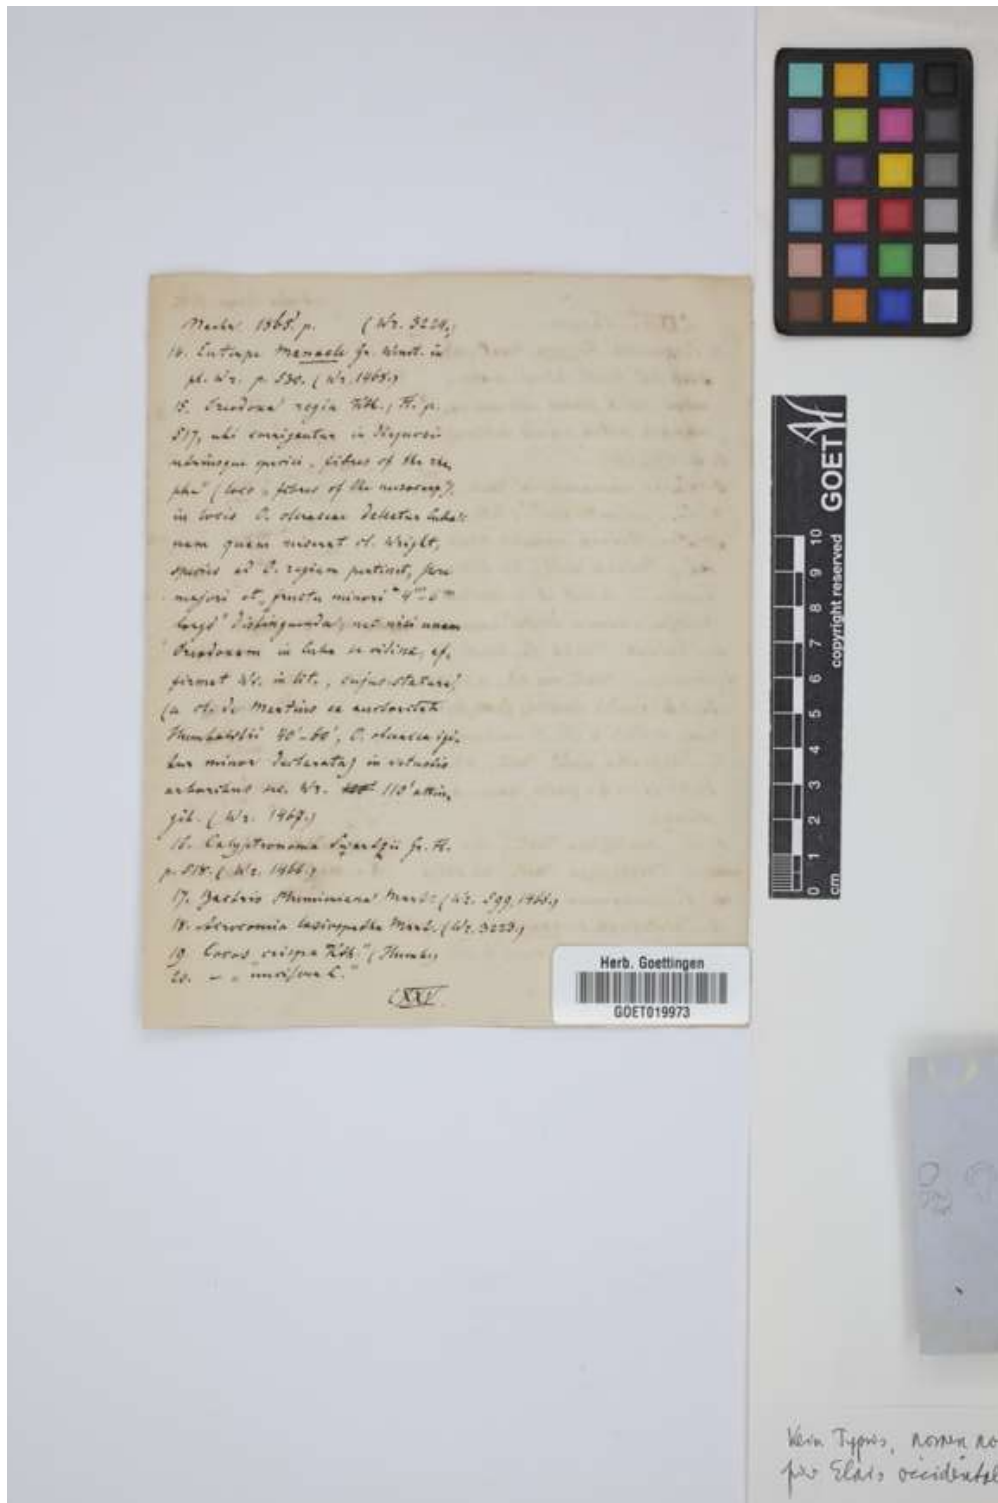 Maibr 1865. p. (Wr. 3224.)
14. Euterpe Manaele Gr. Wendl. in
pl. Wr. p. 530. (Wr. 1465.)
15. Oreodoxa regia Kth., Fl. p.
517, ubi corrigantur in diagnosi
utriusque speciei „fibres of the rha
phe" (loco „fibres of the mesocarp"),
in locis O. oleraceae deleatur Cuba:
nam quam miserat cl. Wright,
species ad O. regiam pertinet,
majori et „fructu minori 4'''-5'''
longo" distinguenda; nec nisi unam
Oreodoxam in Cuba se vidisse, af-
firmat Wr. in lit., cujus statura
(a cl. de Martius ex auctoritate
Humboldtii 40'-60', O. oleracea igi-
tur minor declarata) in vetustis
arboribus sec. Wr. 110' attin-
git. (Wr. 1467.)
16. Calyptronoma Swartzii Gr. Fl.
p. 518. (Wr. 1466.)
17. Bactris Plumieriana Mart. (Wr. 599, 1466.)
18. Acrocomia lasiospatha Mart. (Wr. 3223.)
19. Cocos crispa Kth." (Humb.)
20. — „nucifera L."
CXXV.
Herb. Goettingen
GOET019973
GOET
copyright reserved
0 1 2 3 4 5 6 7 8 9 10
cm
Kein Typus, nomen no
für Elais occidental